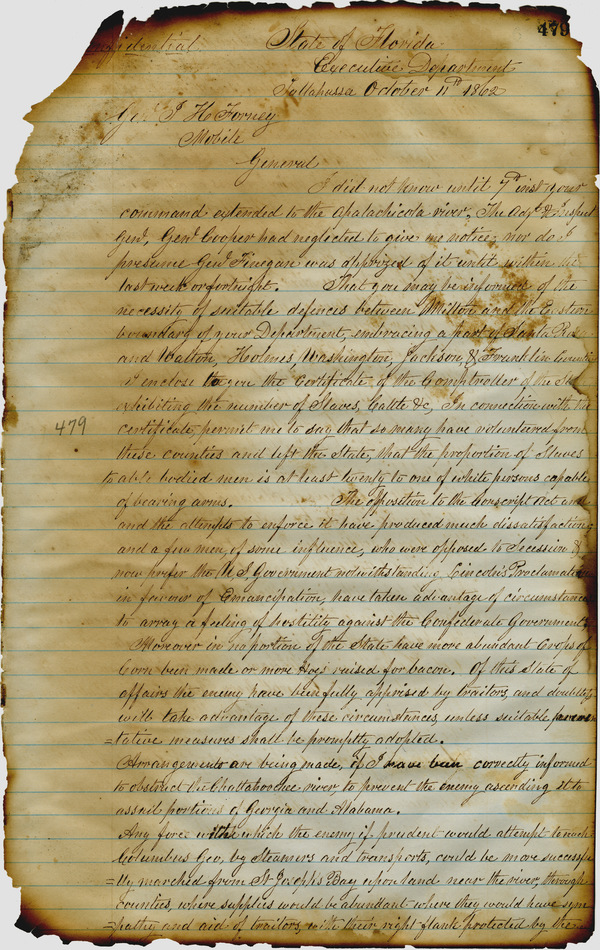 479
Confidential State of Florida
Executive Department
Tallahassa October 11th 1862
Genl J H Forney
Mobile
General
I did not know until 7th inst your
command extended to the Apalachicola river. The Adjt & Inspect
Genl, Genl Cooper had neglected to give me notice, nor do I
presume Genl Finegan was apprized of it until within the
last week or fortnight. That you may be informed of the
necessity of suitable defences between Milton and the Eastern
boundary of your Department, embracing a part of Santa Rosa
and Walton, Holmes, Washington, Jackson, & Franklin Counties
I enclose to you the Certificate of the Comptroller of the State
exhibiting the number of Slaves, Cattle &c, In connection with the
certificate, permit me to say that so many have volunteered from
479
these counties and left the State, that the proportion of Slaves
to able bodied men is at least twenty to one of white persons capable
of bearing arms. The opposition to the Conscript Act and
and the attempts to enforce it have produced much dissatisfaction
and a few men, of some influence, who were opposed to Secession &
now prefer the U S Government notwithstanding Lincoln's Proclamation
in favour of Emancipation, have taken advantage of circumstances
to array a feeling of hostility against the Confederate Government
Moreover in no portion of the State have more abundant Crops of
Corn been made or more Hogs raised for bacon. Of this State of
affairs the enemy have been fully apprised by traitors, and doubtless
will take advantage of these circumstances, unless suitable
=tative measures shall be promptly adopted.
Arrangements are being made, if I have been correctly informed
to obstruct the Chattahoochee river to prevent the enemy ascending it to
assail portions of Georgia and Alabama.
Any force with which the enemy if prudent would attempt to reach
Columbus Geo, by Steamers and transports, could be more successfu
=lly marched from St Josephs Bay upon land near the river, through
counties, where supplies would be abundant where they would have sym
=pathy and aid of traitors, with their right flank protected by the